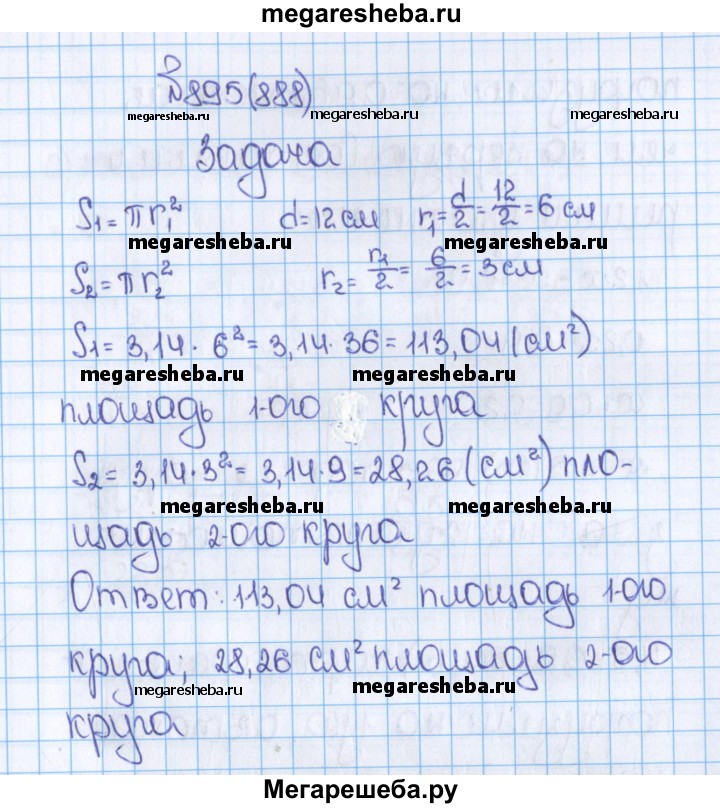 megaresheba.ru
№895(888)
megaresheba.ru megaresheba.ru megaresheba.ru
Задача
S₁ = πr₁² d = 12 см r₁ = d/2 = 12/2 = 6 см
megaresheba.ru megaresheba.ru
S₂ = πr₂² r₂ = r₁/2 = 6/2 = 3 см
S₁ = 3,14 · 6² = 3,14 · 36 = 113,04 (см²)
megaresheba.ru megaresheba.ru
площадь 1-ого круга
S₂ = 3,14 · 3² = 3,14 · 9 = 28,26 (см²) пло-
megaresheba.ru megaresheba.ru
щадь 2-ого круга
Ответ: 113,04 см² площадь 1-ого
круга; 28,26 см² площадь 2-ого
megaresheba.ru megaresheba.ru
круга
Мегарешеба.ру